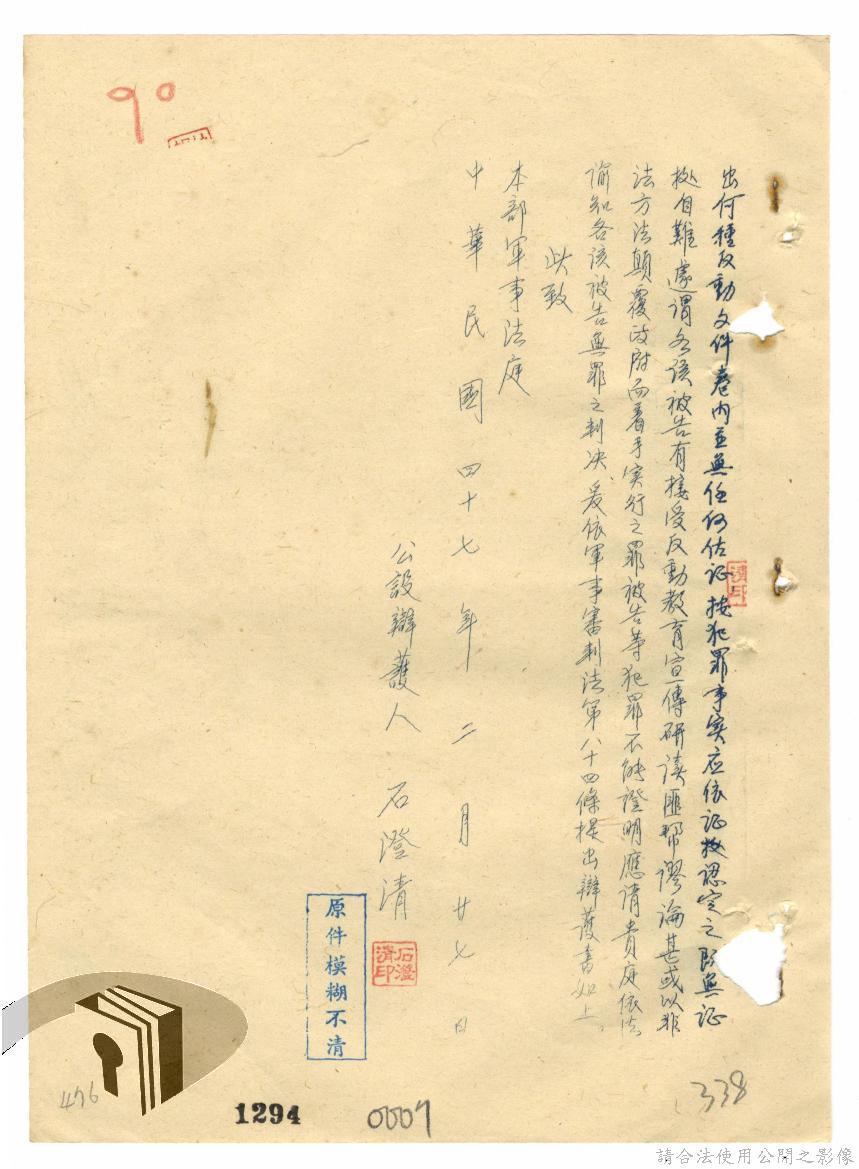 出何種反動文件卷內並無任何佐证按犯罪事实应依证據認定之既無证
據自難遽謂各該被告有接受反動教育宣傳研读匪帮谬論甚或以非
法方法顛覆政府而着手实行之罪被告等犯罪不能證明應请貴庭依法
谕知各该被告無罪之判决爰依軍事審判法第八十四條提出辯護書如上
此致
本部軍事法庭
中華民國四十七年二月廿七日
公設辯護人 石澄清
石澄清印
清印
原件模糊不清
90
476
1294
0007
338
請合法使用公開之影像